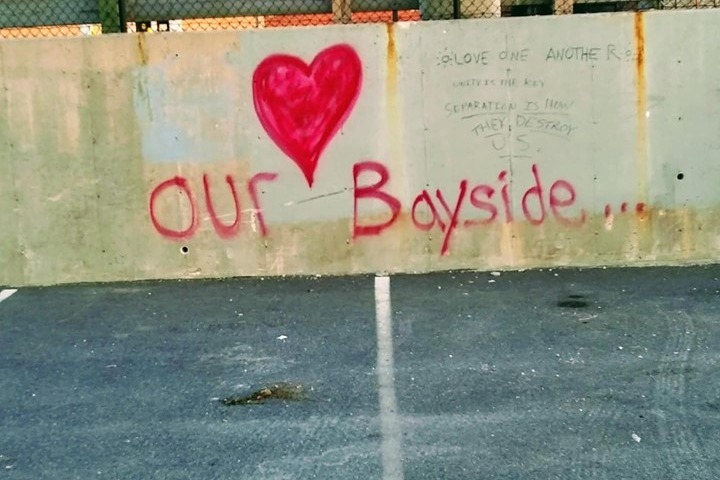 LOVE ONE ANOTHER
UNITY IS THE KEY
SEPARATION IS HOW
THEY DESTROY
US.
OUr Bayside...